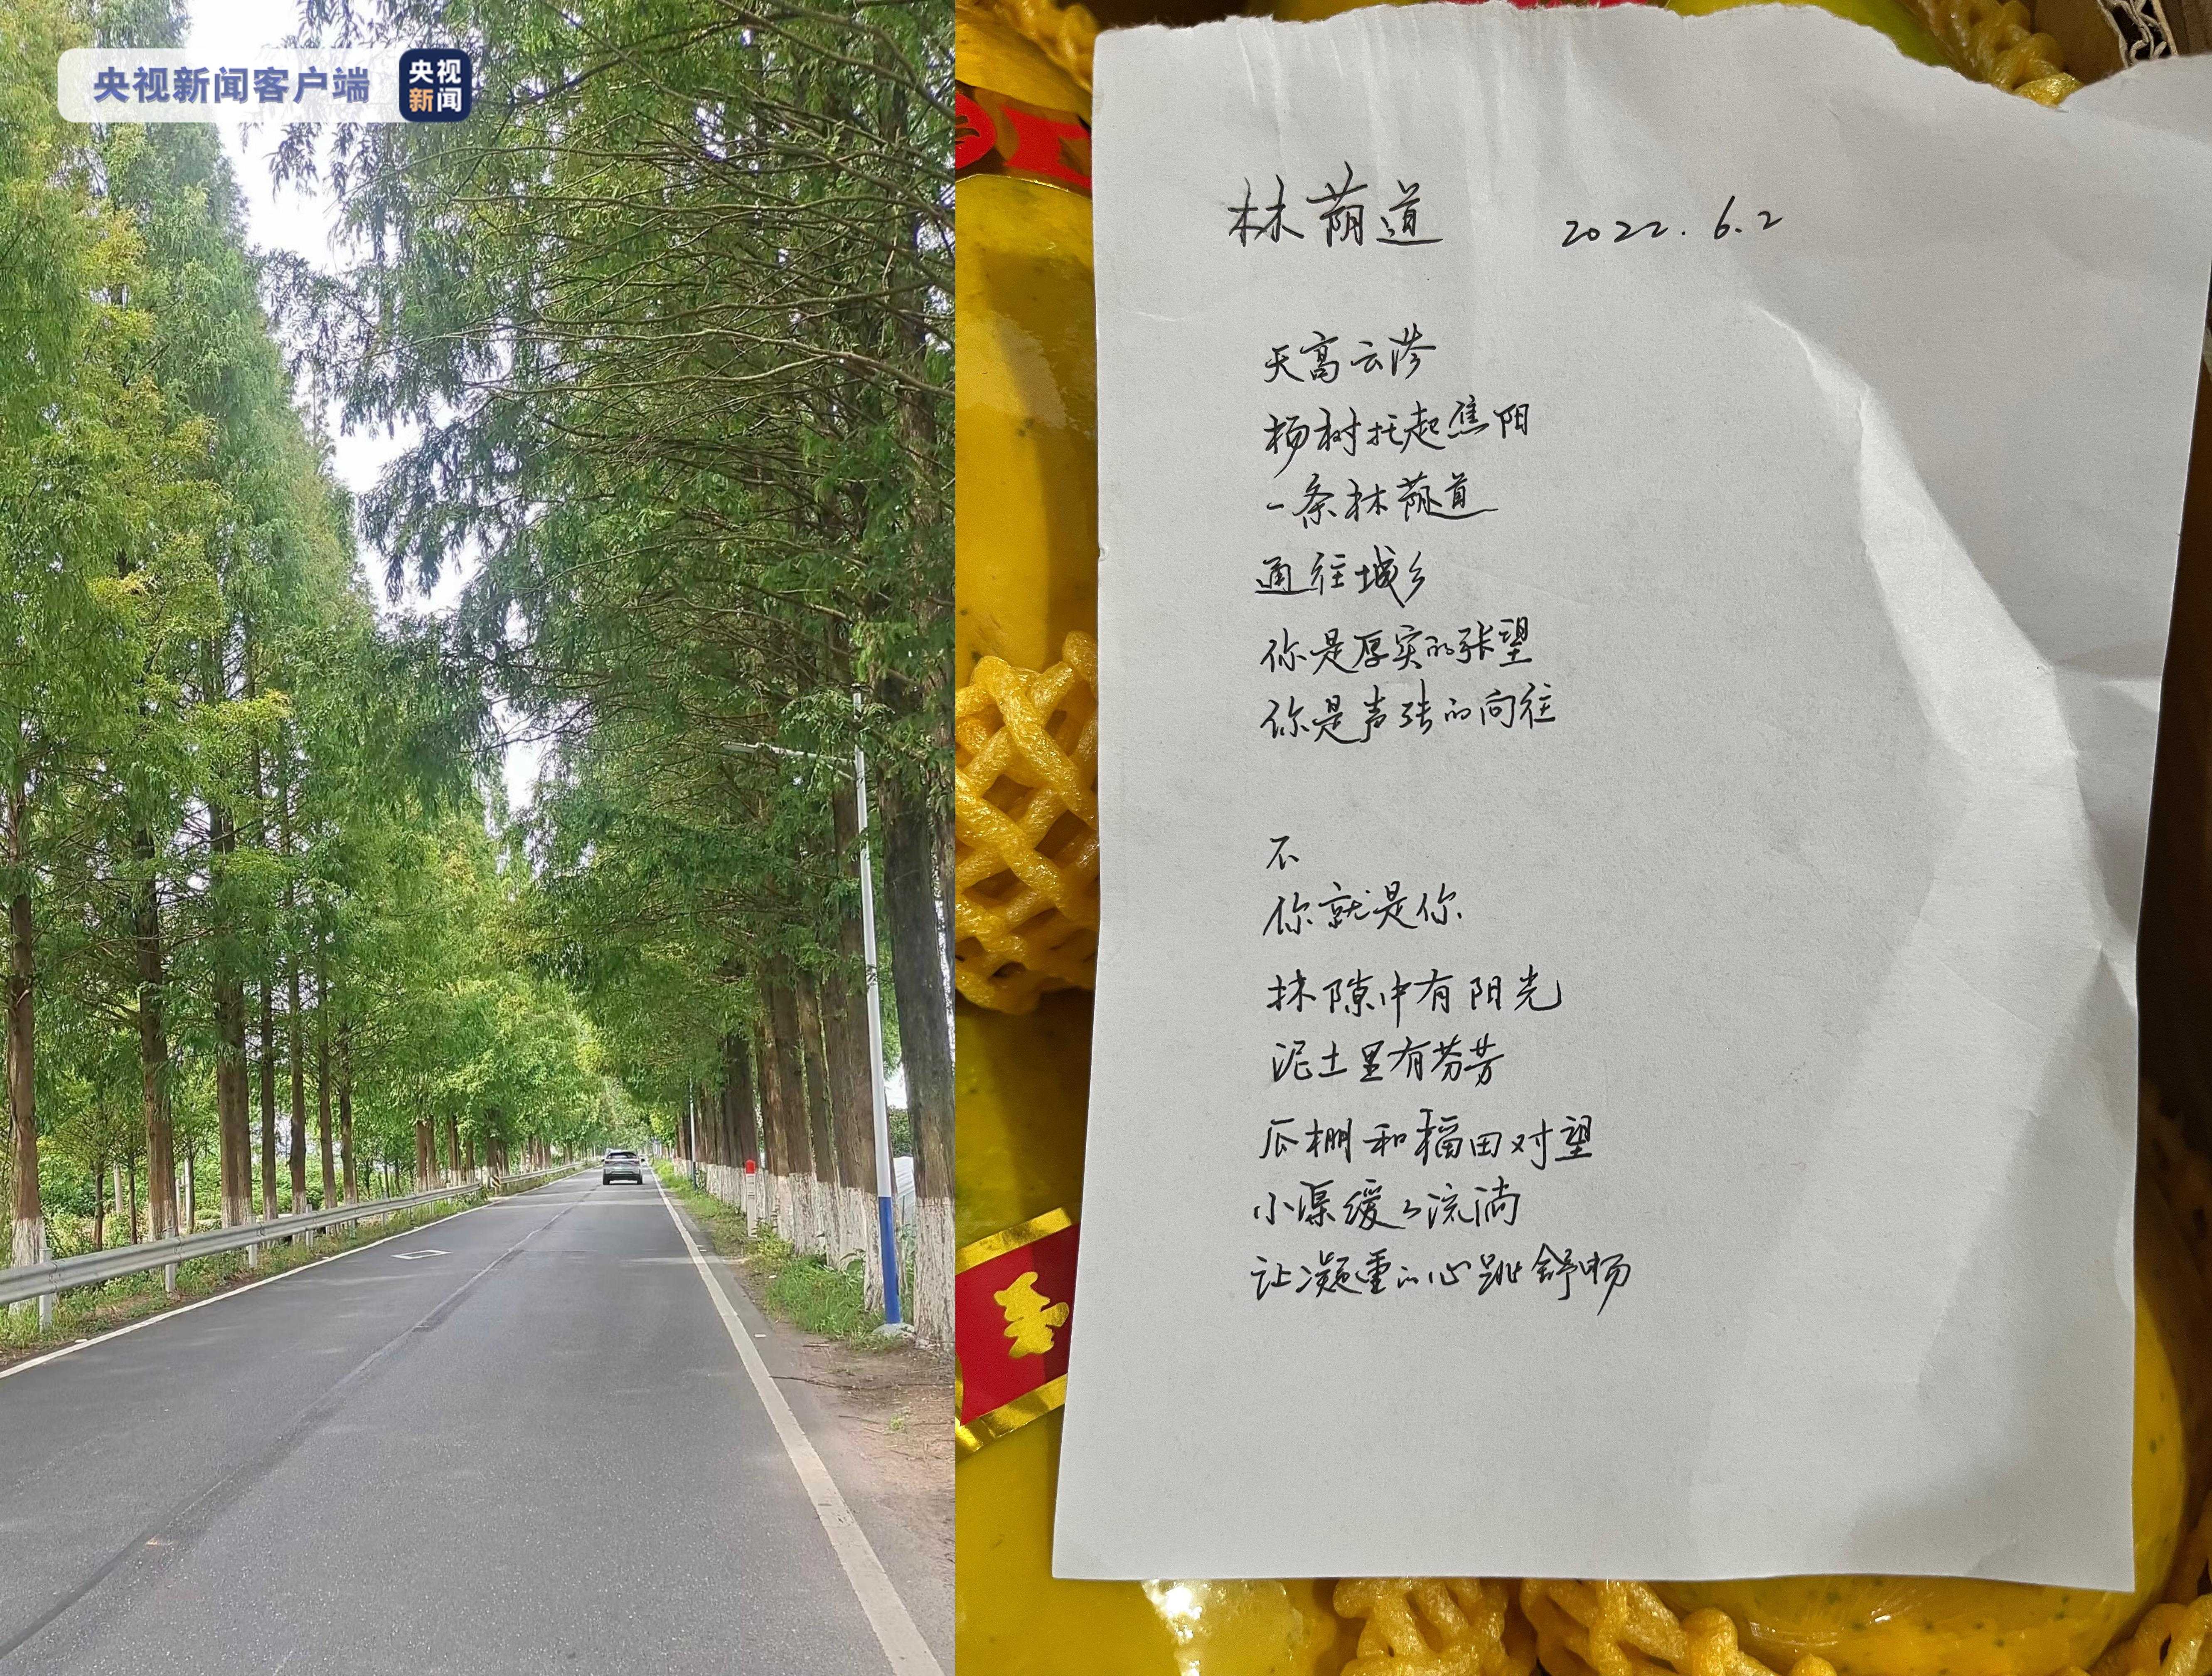 央视新闻客户端
央视
新闻
林荫道 2022.6.2
天高云淡
杨树托起焦阳
一条林荫道
通往城乡
你是厚实的张望
你是声张的向往
不
你就是你
林隙中有阳光
泥土里有芬芳
瓜棚和稻田对望
小渠缓々流淌
让凝重的心跳舒畅